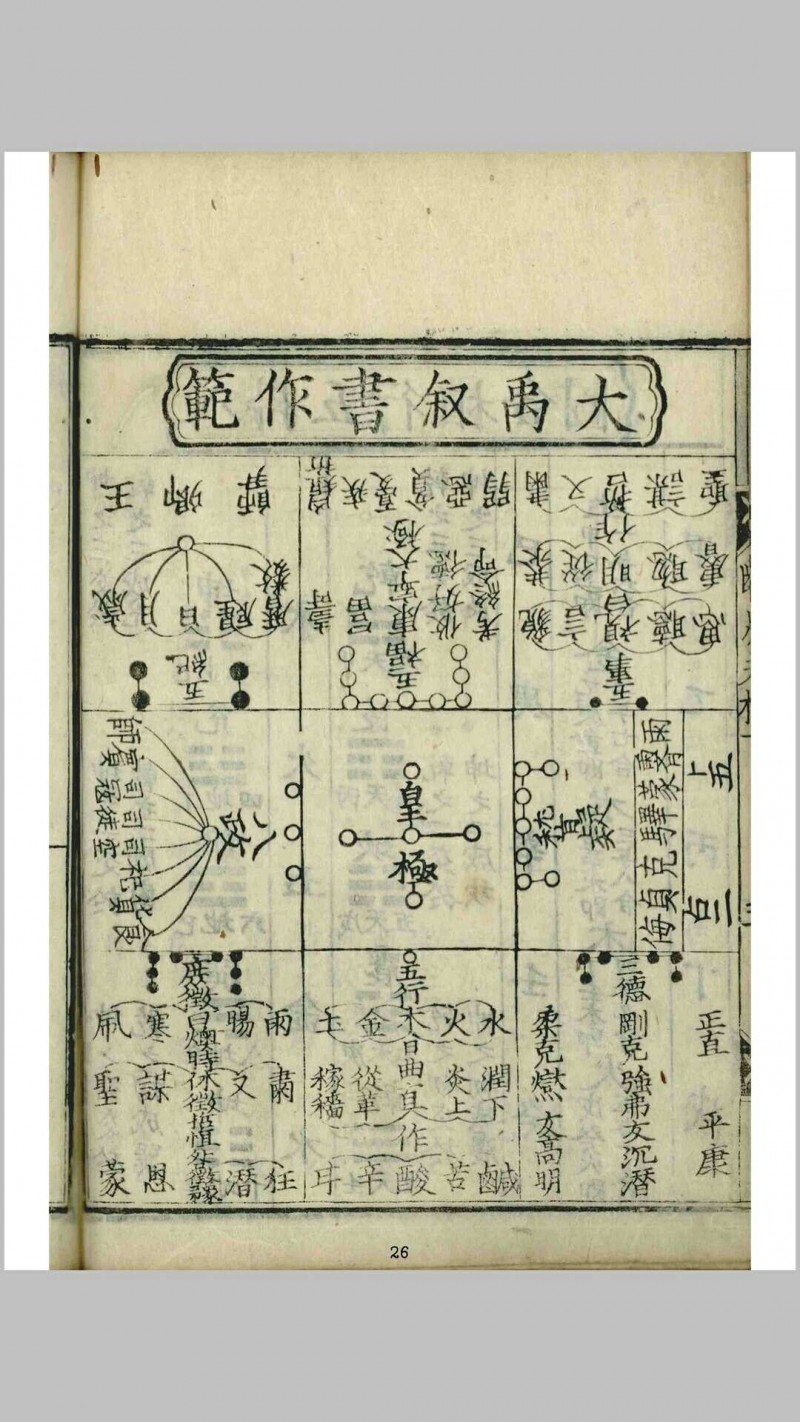 大禹叙書作範
聖謀哲乂肅
作
睿聰明從恭
思聽視言貌
曰
五事
弱惡貧憂疾
六極
壽
富
康寧
攸好德
考終命
五福
師
卿
王
歲月日星辰
曆數
五紀
雨霽蒙驛克貞悔
上五
占二
稽疑
皇極
八政
食貨祀司空司徒司寇賓師
三德
正直
平康
剛克強弗友沉潛
柔克燮友高明
五行
水火木金土
曰
潤下
炎上
曲直
從革
稼穡
作
鹹苦酸辛
庶徵
雨暘燠寒風
曰時
肅乂
謀聖
休徵
咎徵
狂
蒙
26